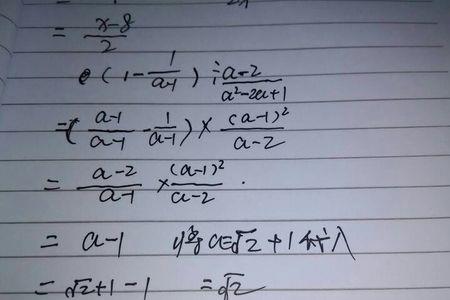 = (x-8)/2
(1 - 1/(a-1)) ÷ (a-2)/(a²-2a+1)
=( (a-1)/(a-1) - 1/(a-1) ) × (a-1)²/(a-2)
= (a-2)/(a-1) × (a-1)²/(a-2) .
= a-1 将a=√2+1代入
= √2+1-1 =√2